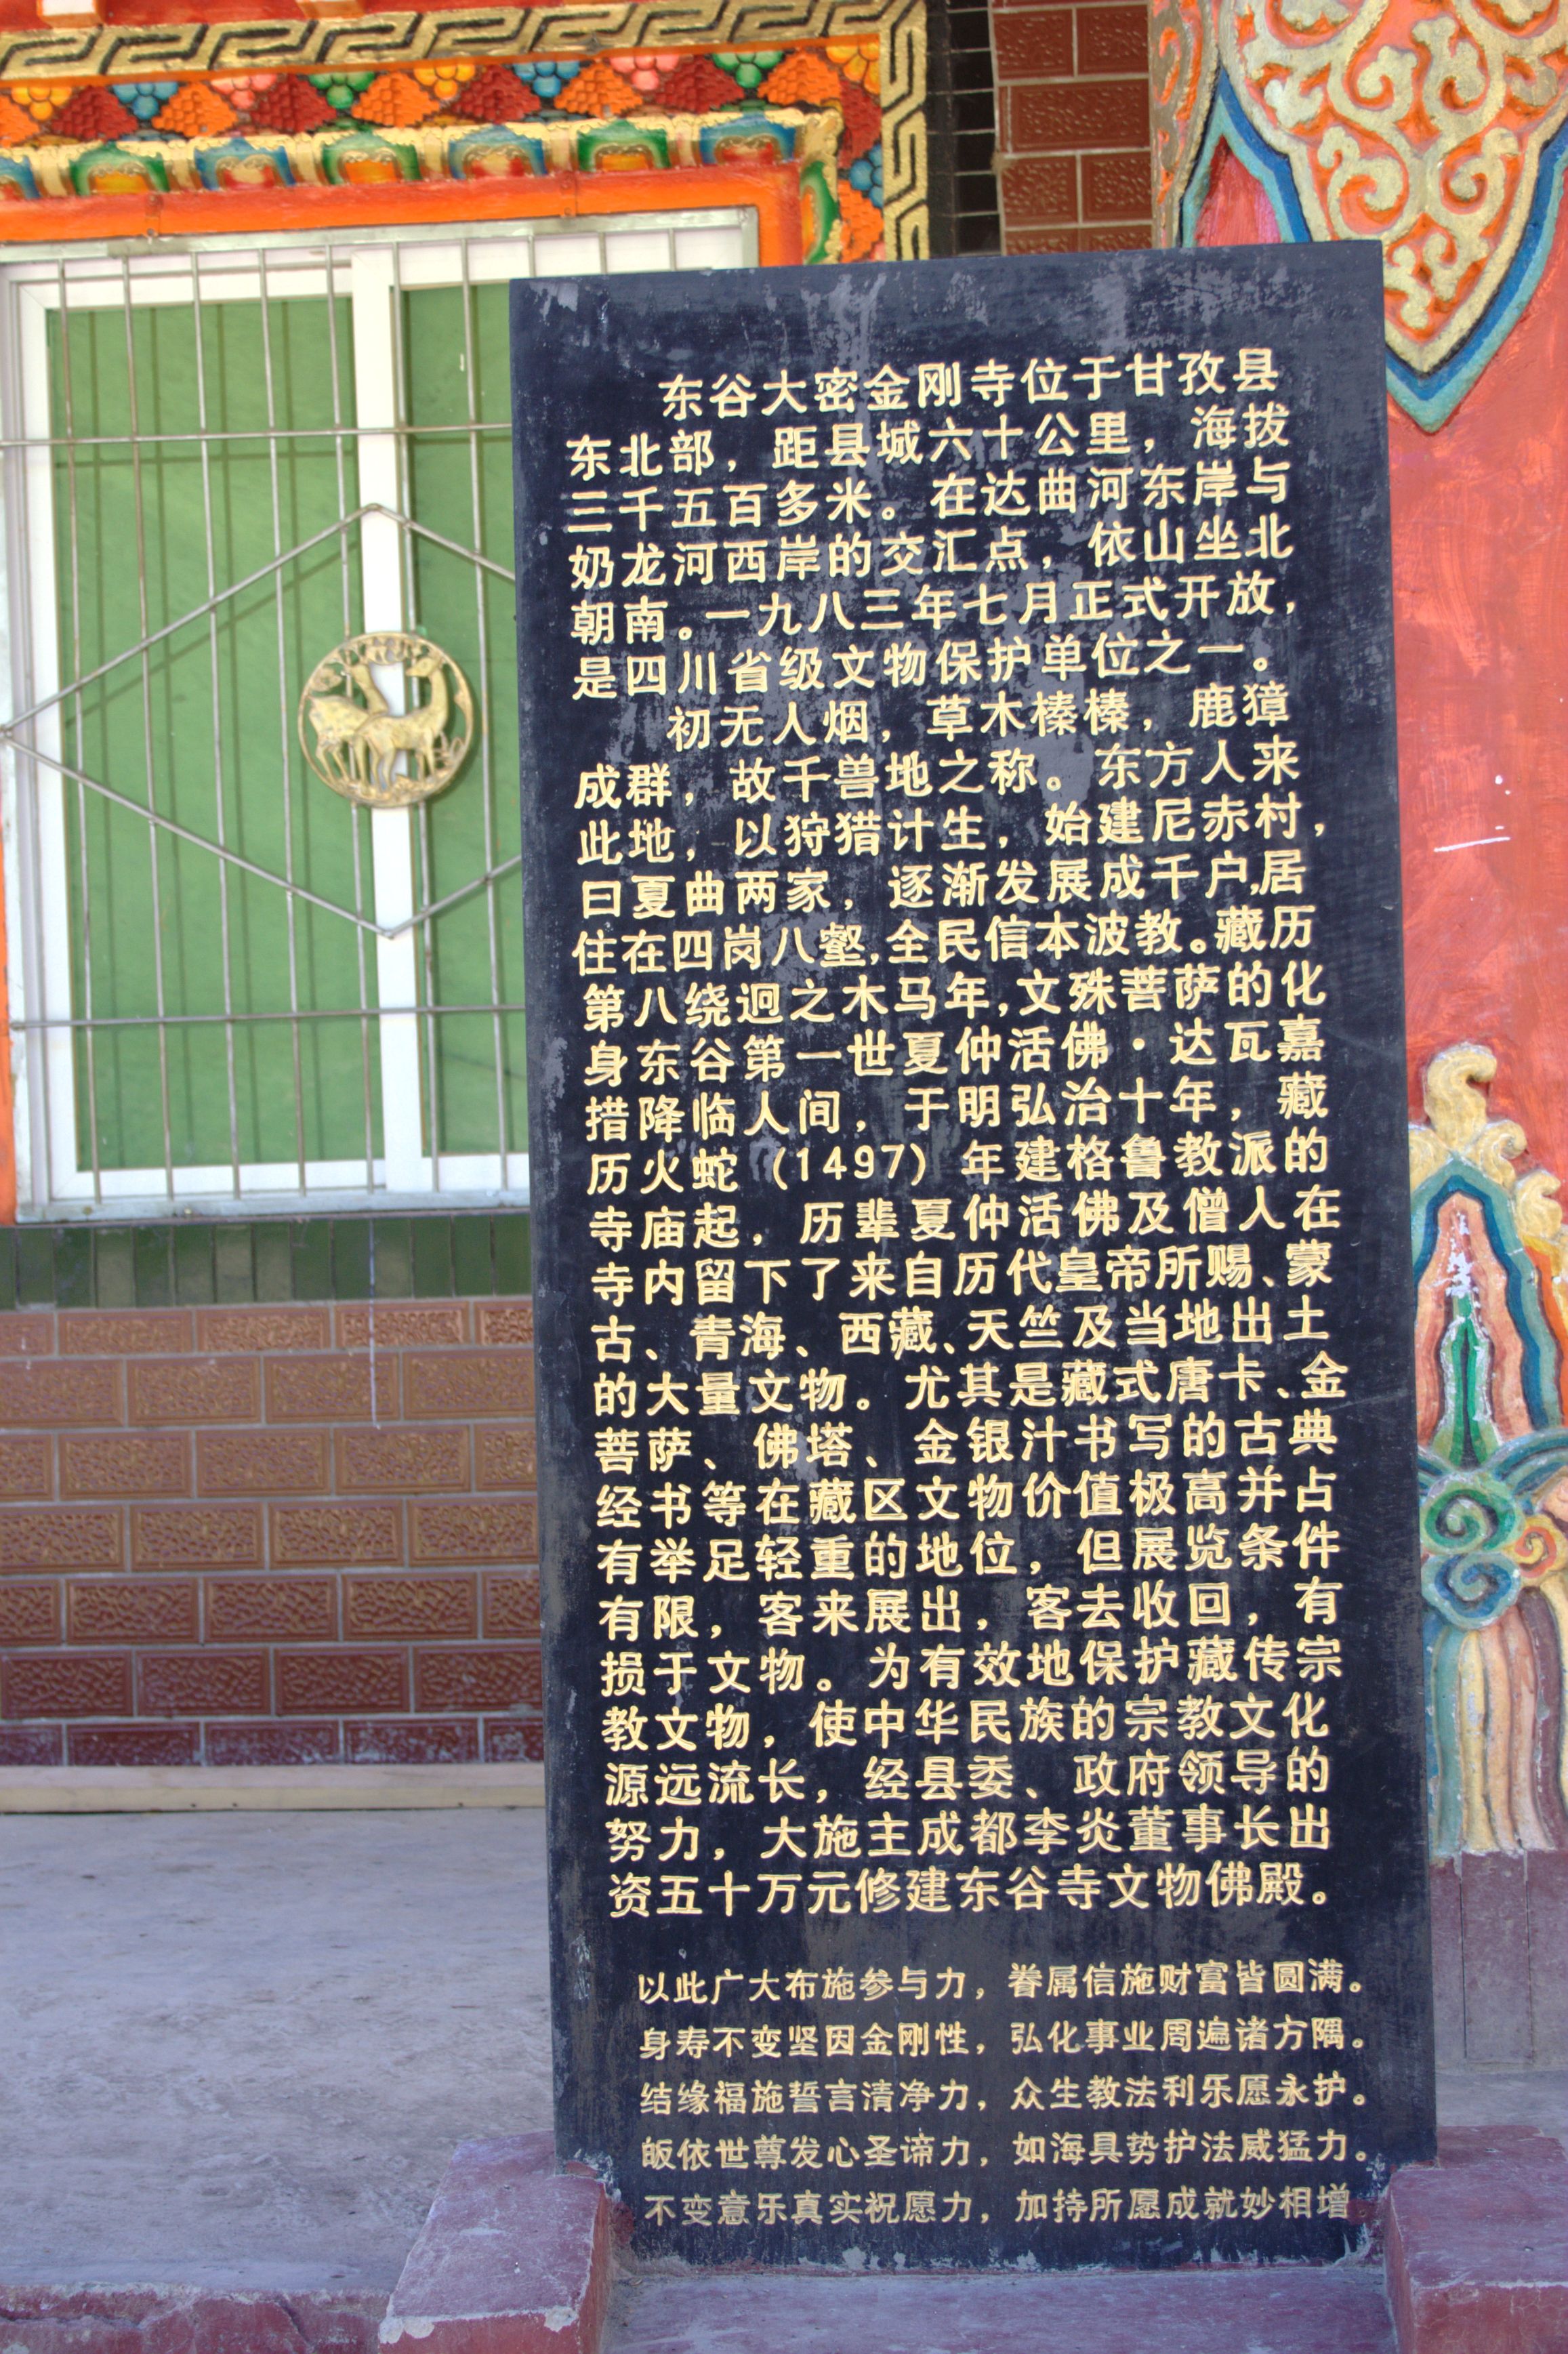 东谷大密金刚寺位于甘孜县
东北部，距县城六十公里，海拔
三千五百多米。在达曲河东岸与
奶龙河西岸的交汇点，依山坐北
朝南。一九八三年七月正式开放，
是四川省级文物保护单位之一。
初无人烟，草木榛榛，鹿獐
成群，故千兽地之称。东方人来
此地，以狩猎计生，始建尼赤村，
曰夏曲两家，逐渐发展成千户,居
住在四岗八壑,全民信本波教。藏历
第八绕迥之木马年,文殊菩萨的化
身东谷第一世夏仲活佛·达瓦嘉
措降临人间，于明弘治十年，藏
历火蛇（1497）年建格鲁教派的
寺庙起，历辈夏仲活佛及僧人在
寺内留下了来自历代皇帝所赐、蒙
古、青海、西藏、天竺及当地出土
的大量文物。尤其是藏式唐卡、金
菩萨、佛塔、金银汁书写的古典
经书等在藏区文物价值极高并占
有举足轻重的地位，但展览条件
有限，客来展出，客去收回，有
损于文物。为有效地保护藏传宗
教文物，使中华民族的宗教文化
源远流长，经县委、政府领导的
努力，大施主成都李炎董事长出
资五十万元修建东谷寺文物佛殿。
以此广大布施参与力，眷属信施财富皆圆满。
身寿不变坚因金刚性，弘化事业周遍诸方隅。
结缘福施誓言清净力，众生教法利乐愿永护。
皈依世尊发心圣谛力，如海具势护法威猛力。
不变意乐真实祝愿力，加持所愿成就妙相增